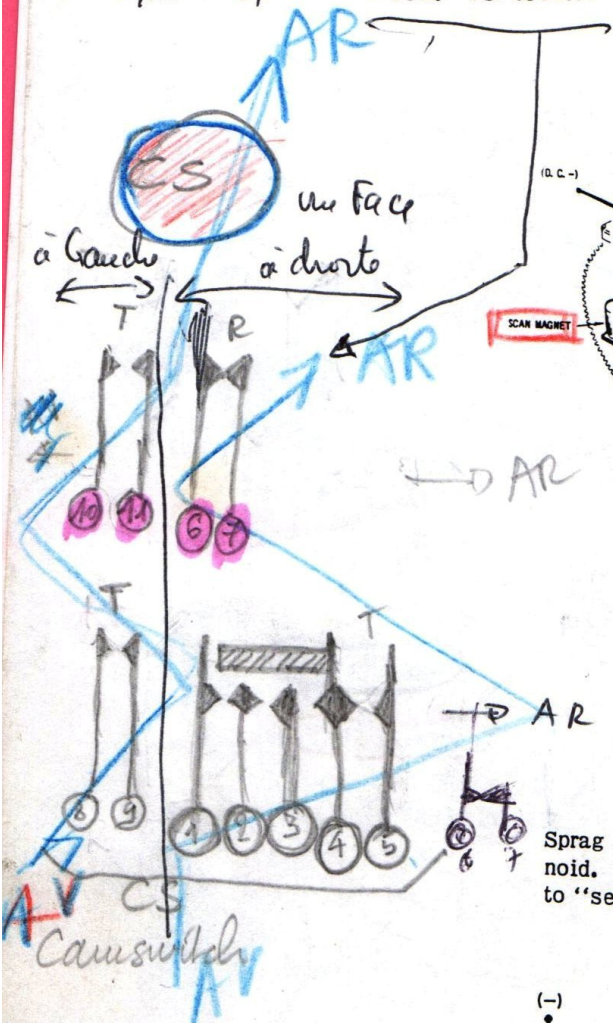 AR
CS
(D. C. -)
vue Face
à Gauche
à droite
T
R
SCAN MAGNET
AR
AR
10 11 6 7
T
T
AR
8 9
1 2 3 4 5
6 7
Sprag
noid.
to “se
AV
CS
Camswitch
AV
(-)